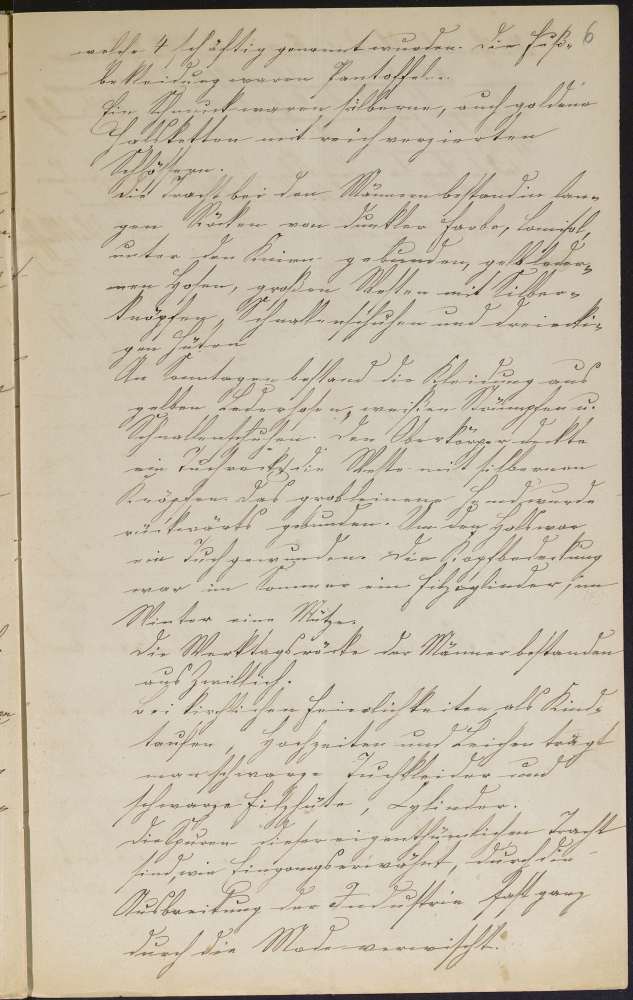 6
welche 4 schäftig genannt wurden. Die Fuß-
bekleidung waren Pantoffel.
Ein Schmuck waren silberne, auch goldene
Halsketten mit reich verzierten
Schlößern.
Die Tracht bei den Männern bestand in lan-
gen Röcken von dunkler Farbe, Camisol,
unter den Knien gebunden, gelbleder-
nen Hosen, großen Westen mit Silber-
knöpfen, Schnallenschuhen und dreiecki-
gen Hüten
An Sonntagen bestand die Kleidung aus
gelben Lederhosen, weißen Strümpfen u.
Schnallenschuhen. Den Oberkörper deckte
ein Tuchrock, die Weste mit silbernen
Knöpfen. Das grobleinene Hemd wurde
rückwärts gebunden. Um den Hals war
ein Tuch gewunden. Die Kopfbedeckung
war im Sommer ein Filzcylinder, im
Winter eine Mütze.
Die Werktagsröcke der Männer bestanden
aus Zwillich.
Bei kirchlichen Feierlichkeiten als Kind-
taufen, Hochzeiten und Leichen trägt
man schwarze Tuchkleider und
schwarze Filzhüte, Cylinder.
Die Spuren dieser eigenthümlichen Tracht
sind, wie Eingangs erwähnt, durch die
Ausbreitung der Industrie fast ganz
durch die Mode verwischt.